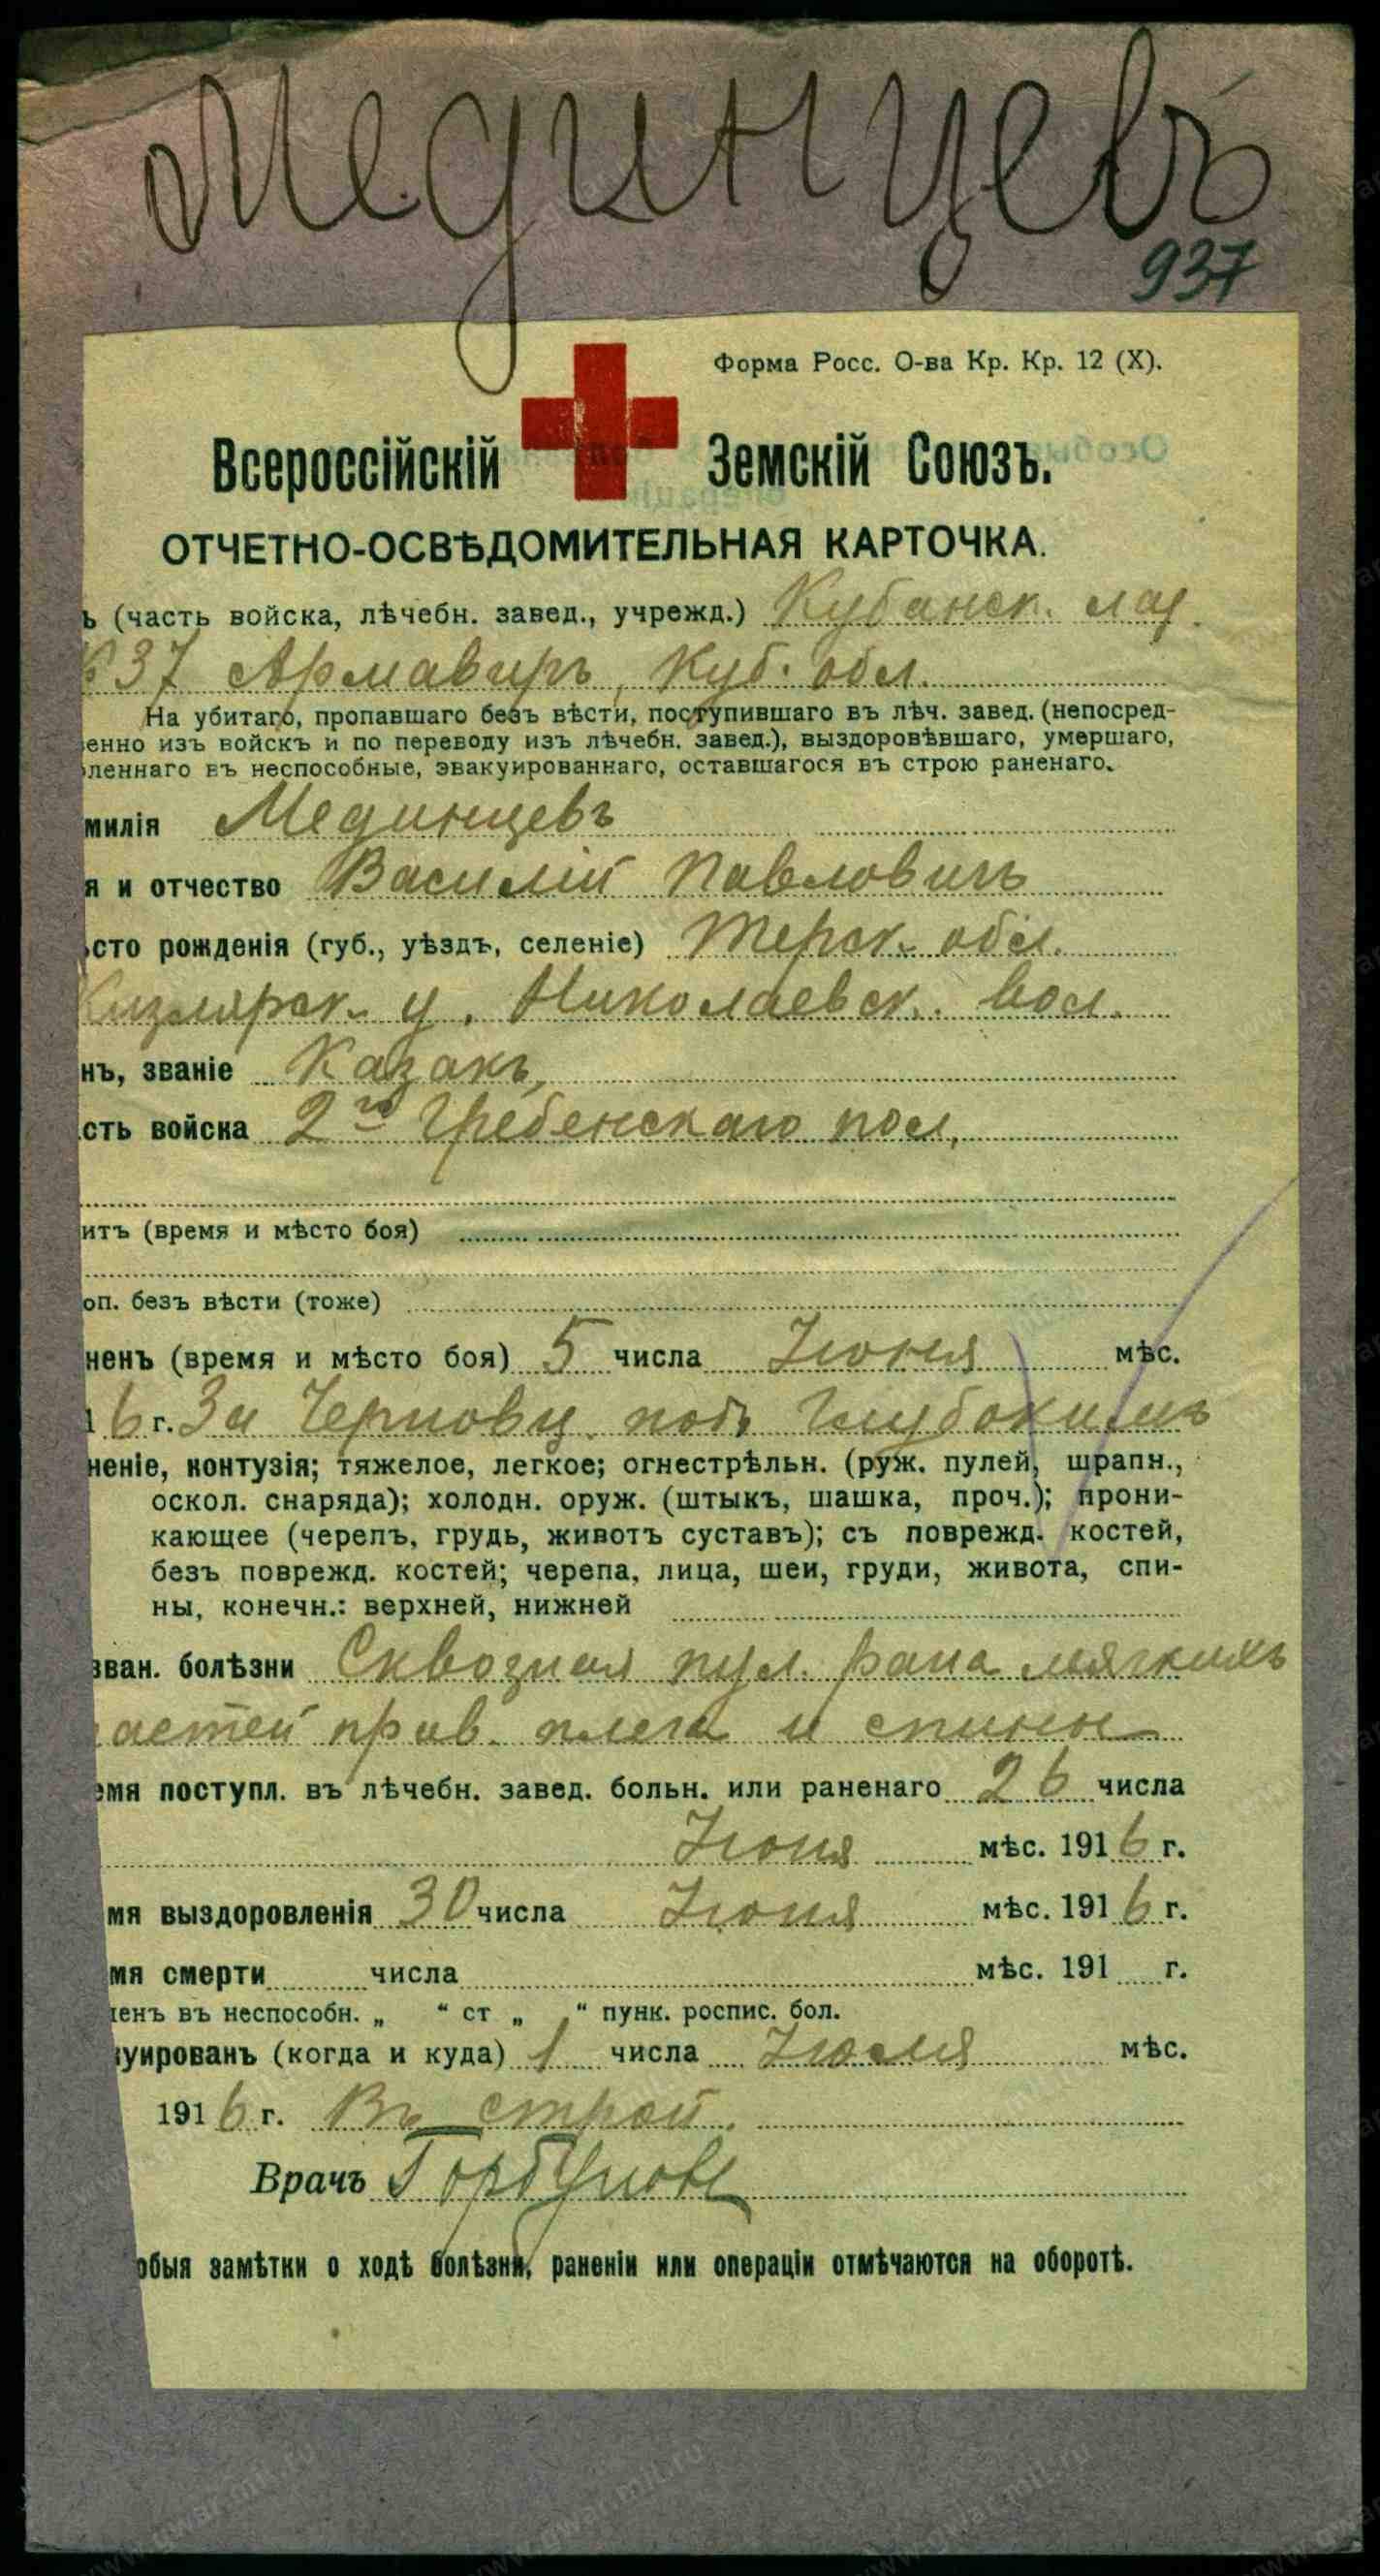 Мединцевъ
937
Форма Росс. О-ва Кр. Кр. 12 (X).
Всероссійскій Земскій Союзъ.
ОТЧЕТНО-ОСВѢДОМИТЕЛЬНАЯ КАРТОЧКА.
ъ (часть войска, лѣчебн. завед., учрежд.) Кубанск. лаз.
№37 Армавиръ, Куб. обл.
На убитаго, пропавшаго безъ вѣсти, поступившаго въ лѣч. завед. (непосред-
енно изъ войскъ и по переводу изъ лѣчебн. завед.), выздоровѣвшаго, умершаго,
леннаго въ неспособные, эвакуированнаго, оставшагося въ строю раненаго.
милія Мединцевъ
я и отчество Василій Павловичъ
сто рожденія (губ., уѣздъ, селеніе) Терск. обл.
Кизлярск. у. Николаевск. вол.
нъ, званіе Казакъ,
сть войска 2го Гребенскаго пол,
итъ (время и мѣсто боя)
оп. безъ вѣсти (тоже)
ненъ (время и мѣсто боя) 5 числа Іюня мѣс.
1 6 г. За Черновц. подъ Глубокимъ
неніе, контузія; тяжелое, легкое; огнестрѣльн. (руж. пулей, шрапн.,
оскол. снаряда); холодн. оруж. (штыкъ, шашка, проч.); прони-
кающее (черепъ, грудь, животъ суставъ); съ поврежд. костей,
безъ поврежд. костей; черепа, лица, шеи, груди, живота, спи-
ны, конечн.: верхней, нижней
зван. болѣзни Сквозная пул. рана мягкихъ
частей прав. плеча и спины
емя поступл. въ лѣчебн. завед. больн. или раненаго 26 числа
Іюня мѣс. 1916 г.
мя выздоровленія 30 числа Іюня мѣс. 1916 г.
мя смерти числа мѣс. 191 г.
ленъ въ неспособн. „ “ ст „ “ пунк. роспис. бол.
куированъ (когда и куда) 1 числа Іюля мѣс.
1916 г. Въ строй.
Врачъ Горбунов
обыя замѣтки о ходѣ болѣзни, раненіи или операціи отмѣчаются на оборотѣ.